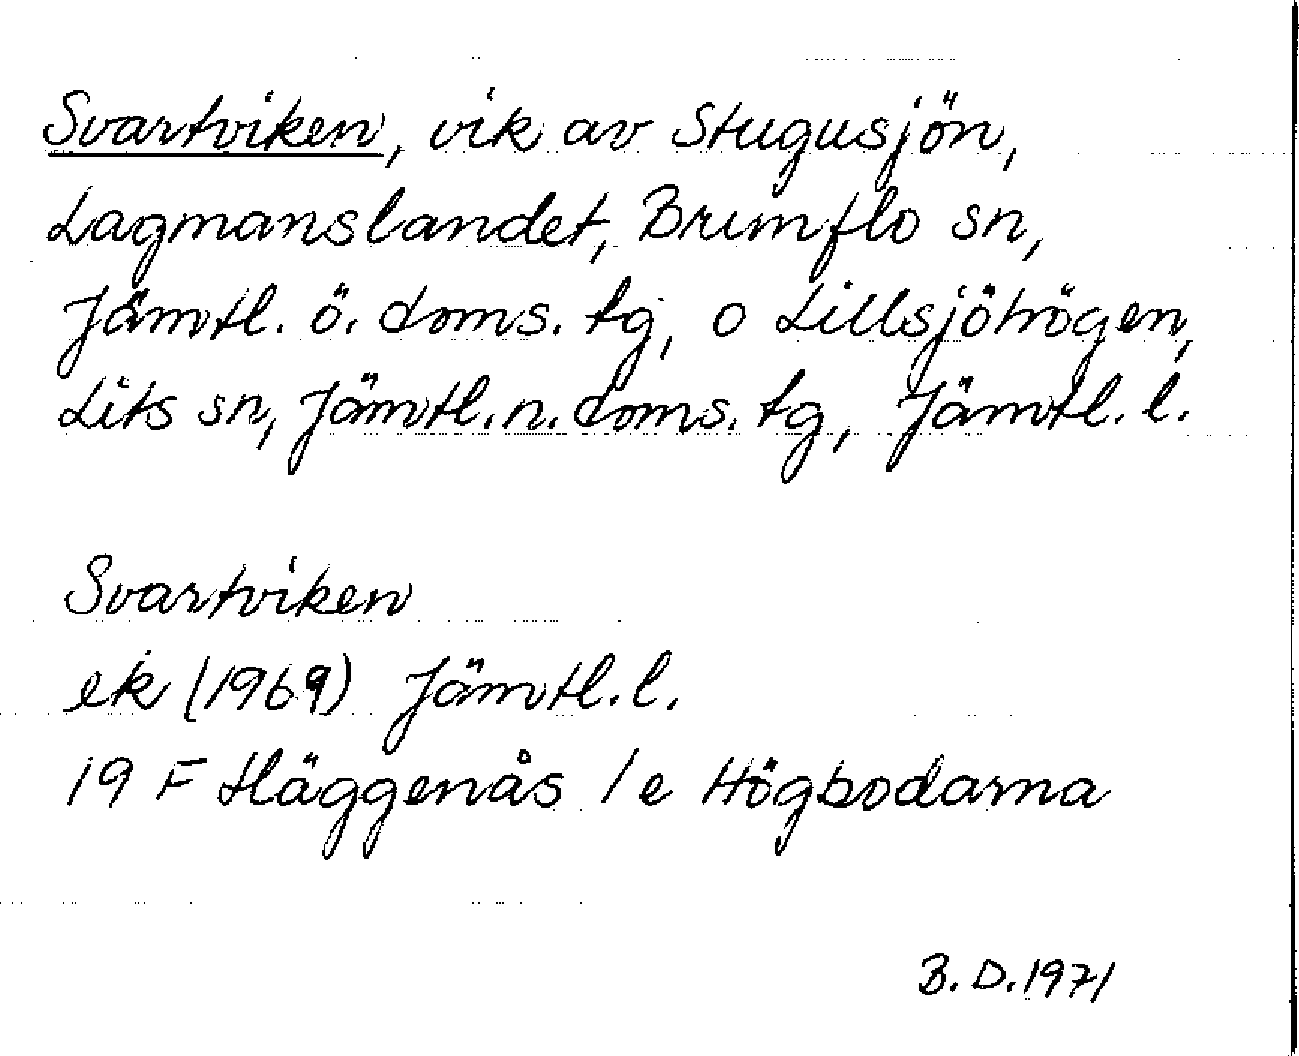 Svartviken, vik av Stugusjön,
Lagmanslandet, Brunflo sn,
Jämtl. ö. doms. tg, o Lillsjöhögen,
Lits sn, Jämtl. n. doms. tg, Jämtl. l.
Svartviken
ek (1969) Jämtl. l.
19 F Häggenås 1 e Högbodarna
B. D. 1971